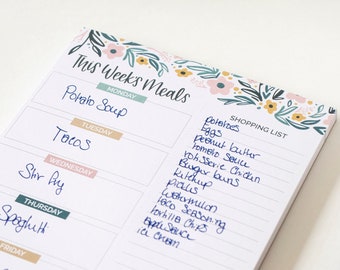 This Week's Meals
MONDAY
Potato Soup
TUESDAY
Tacos
WEDNESDAY
Stir Fry
THURSDAY
Spaghetti
FRIDAY
SHOPPING LIST
potatoes
Eggs
peanut butter
tomato sauce
rotisserie chicken
Burger buns
Ketchup
pickles
Watermelon
taco seasoning
tortilla chips
applesauce
ice cream